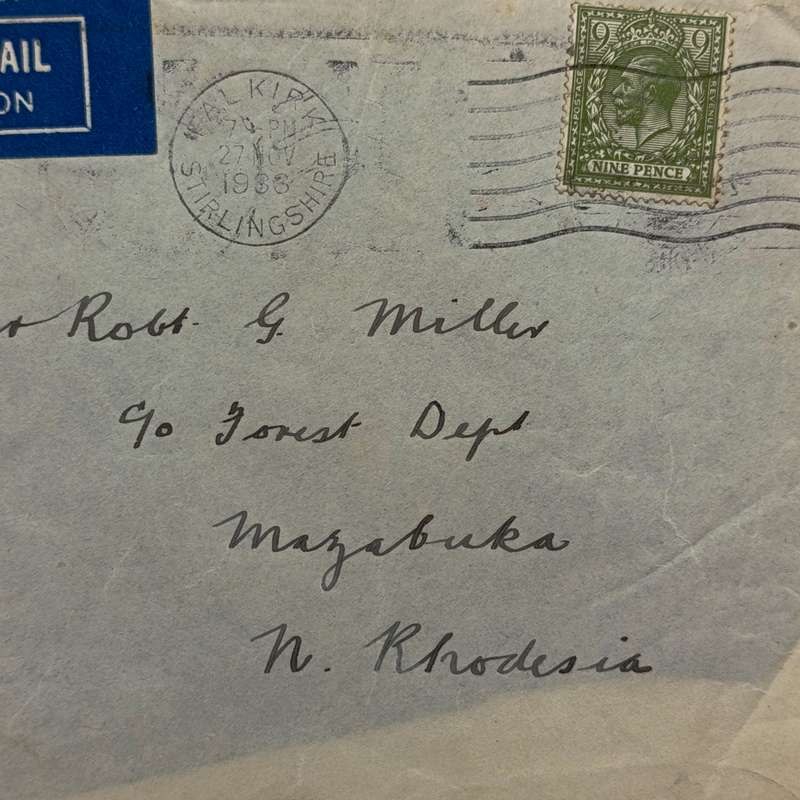 AIL
ON
FALKIRK
7- PM
27 NOV
1936
STIRLINGSHIRE
9 9
POSTAGE REVENUE
NINE PENCE
Robt. G. Miller
c/o Forest Dept
Mazabuka
N. Rhodesia